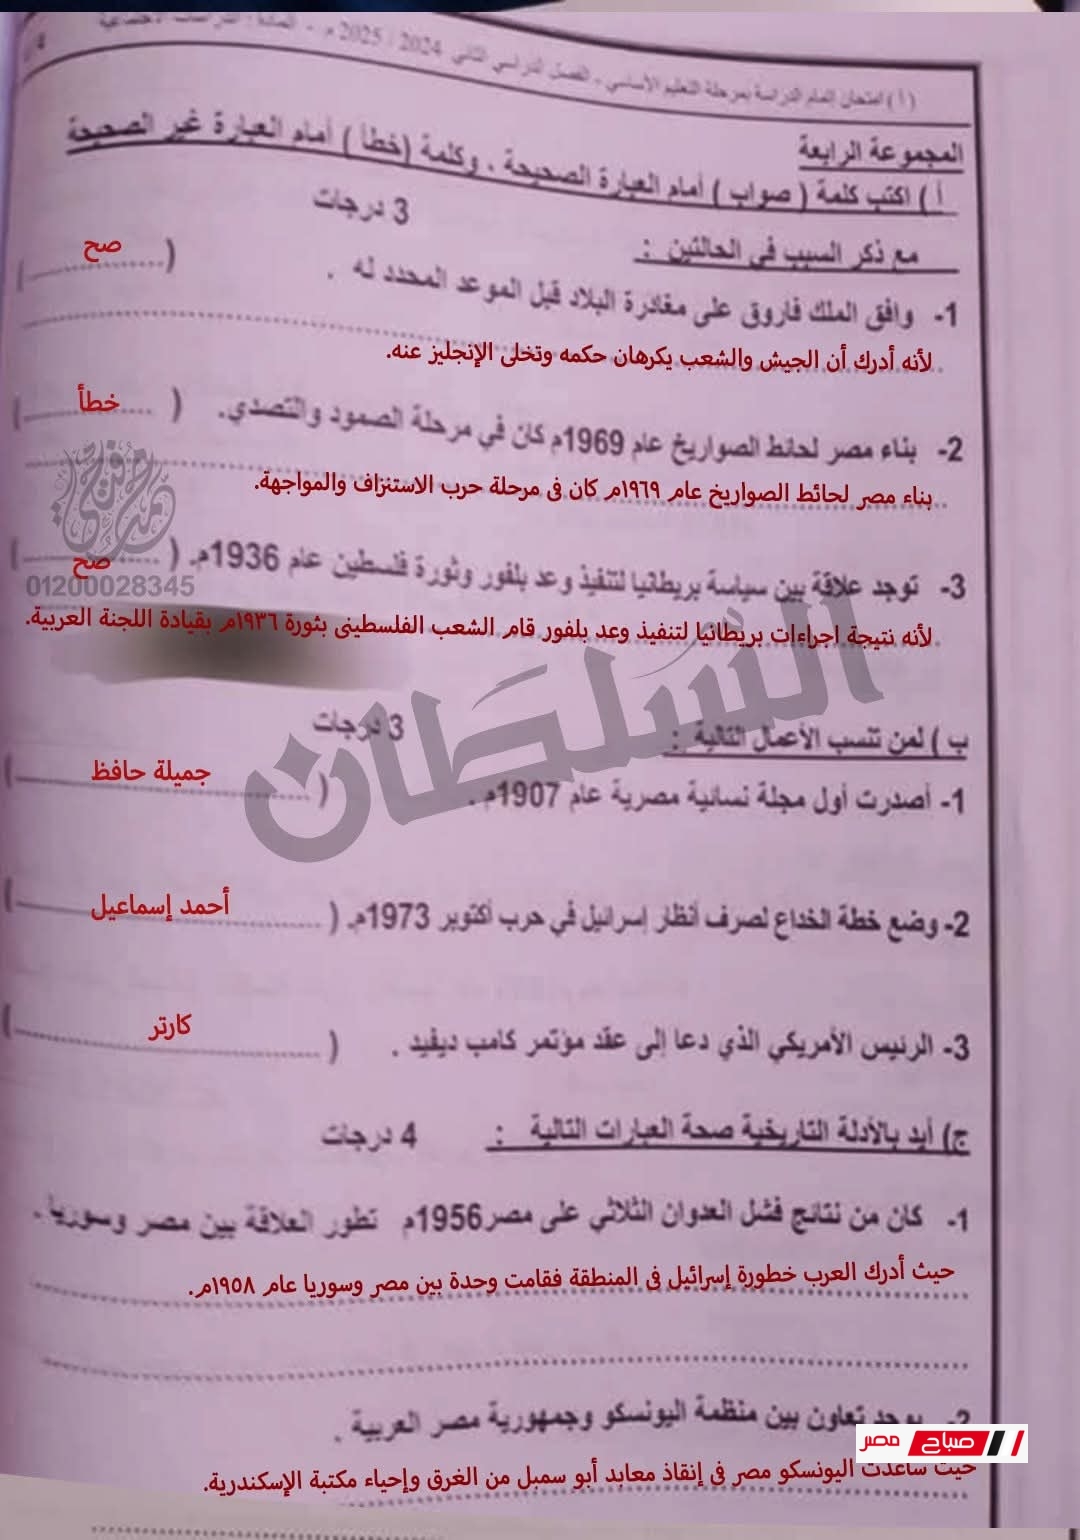 ( أ ) امتحان إتمام الدراسة بمرحلة التعليم الأساسي - الفصل الدراسي الثاني 2024 / 2025 م - المادة : الدراسات الاجتماعية
4
المجموعة الرابعة
أ ) اكتب كلمة ( صواب ) أمام العبارة الصحيحة ، وكلمة (خطأ ) أمام العبارة غير الصحيحة
مع ذكر السبب في الحالتين :
3 درجات
1- وافق الملك فاروق على مغادرة البلاد قبل الموعد المحدد له . ( صح )
لأنه أدرك أن الجيش والشعب يكرهان حكمه وتخلى الإنجليز عنه.
2- بناء مصر لحائط الصواريخ عام 1969م كان في مرحلة الصمود والتصدي. ( خطأ )
بناء مصر لحائط الصواريخ عام ١٩٦٩م كان فى مرحلة حرب الاستنزاف والمواجهة.
3- توجد علاقة بين سياسة بريطانيا لتنفيذ وعد بلفور وثورة فلسطين عام 1936م. ( صح )
01200028345
لأنه نتيجة اجراءات بريطانيا لتنفيذ وعد بلفور قام الشعب الفلسطينى بثورة ١٩٣٦م بقيادة اللجنة العربية.
السلطان
ب ) لمن تنسب الأعمال التالية :
3 درجات
1- أصدرت أول مجلة نسائية مصرية عام 1907م . ( جميلة حافظ )
2- وضع خطة الخداع لصرف أنظار إسرائيل في حرب أكتوبر 1973م. ( أحمد إسماعيل )
3- الرئيس الأمريكي الذي دعا إلى عقد مؤتمر كامب ديفيد . ( كارتر )
ج) أيد بالأدلة التاريخية صحة العبارات التالية : 4 درجات
1- كان من نتائج فشل العدوان الثلاثي على مصر1956م تطور العلاقة بين مصر وسوريا .
حيث أدرك العرب خطورة إسرائيل فى المنطقة فقامت وحدة بين مصر وسوريا عام ١٩٥٨م.
2- يوجد تعاون بين منظمة اليونسكو وجمهورية مصر العربية .
صباح مصر
حيث ساعدت اليونسكو مصر فى إنقاذ معابد أبو سمبل من الغرق وإحياء مكتبة الإسكندرية.